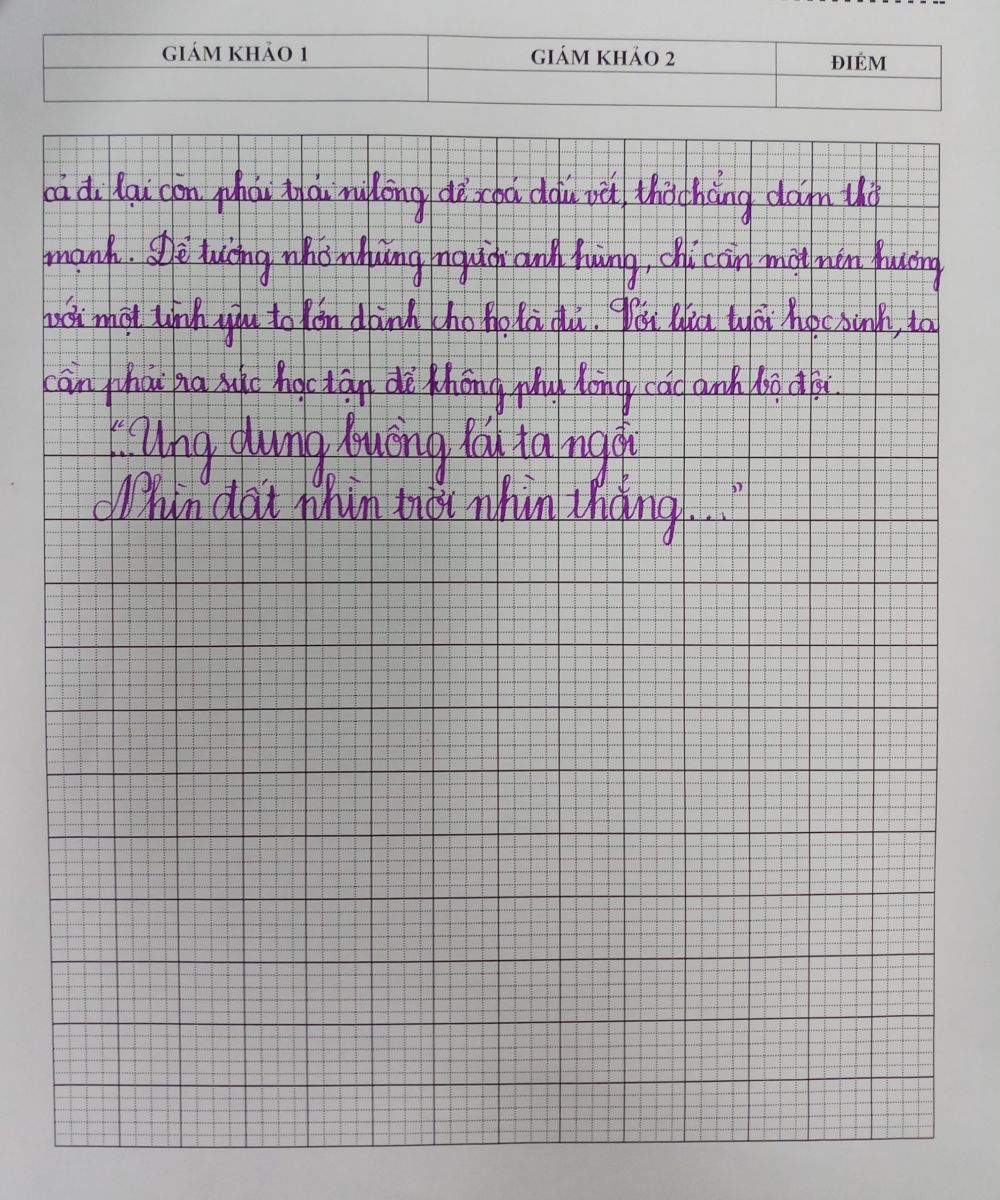 GIÁM KHẢO 1 GIÁM KHẢO 2 ĐIỂM
cả đi lại còn phải trải nilông để xoá dấu vết, thở chẳng dám thở
mạnh. Để tưởng nhớ những người anh hùng, chỉ cần một nén hương
với một tình yêu to lớn dành cho họ là đủ. Với lứa tuổi học sinh, ta
cần phải ra sức học tập để không phụ lòng các anh bộ đội.
"...Ung dung buồng lái ta ngồi
Nhìn đất nhìn trời nhìn thẳng..."